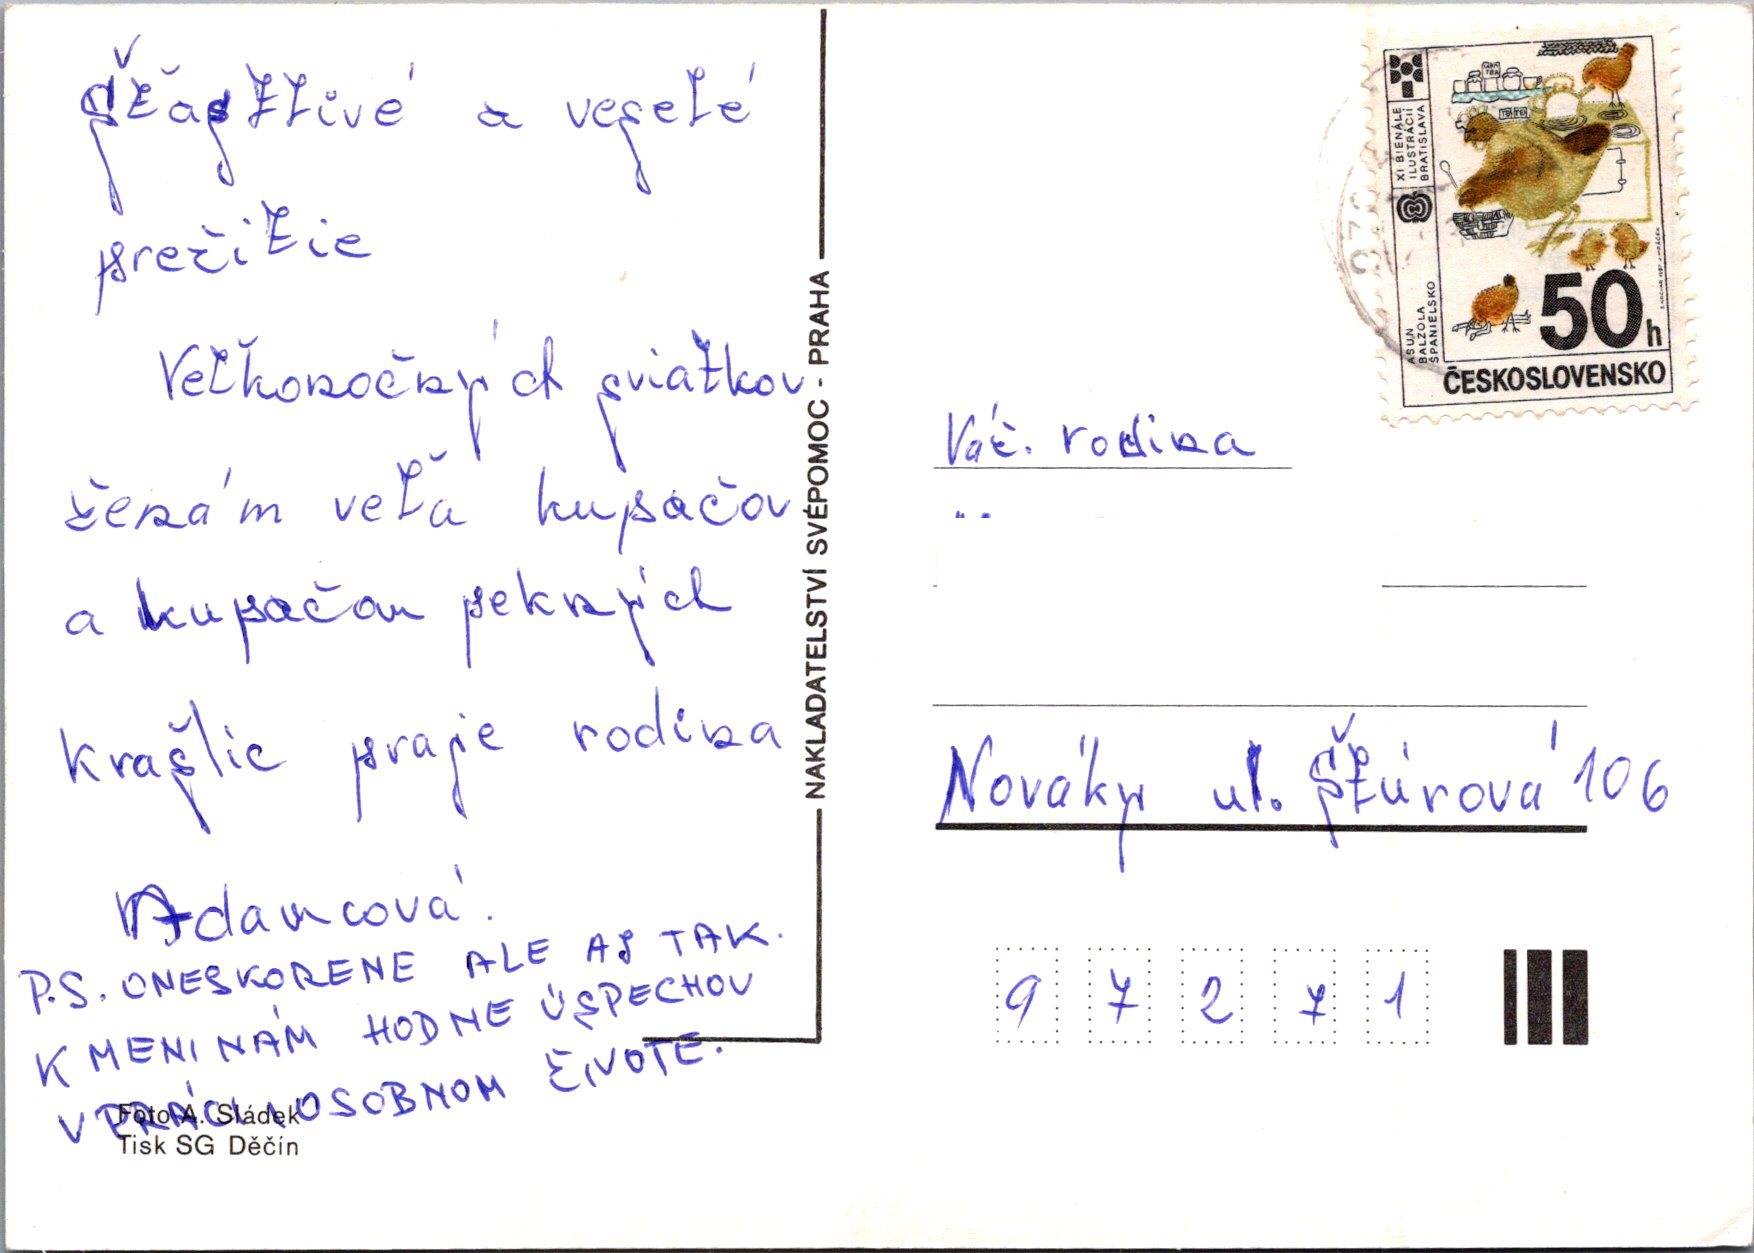 Šťastlivé a veselé
prežitie
Veľkonočných sviatkov
žená'm veľa kupačov
a kupačou pekných
kraslic praje rodina
Adamcová.
P.S. ONESKORENE ALE AJ TAK.
K MENINÁM HODNE ÚSPECHOV
V PRÁCI OSOBNOM ŽIVOTE.
Foto A. Sládek
Tisk SG Děčín
NAKLADATELSTVÍ SVÉPOMOC · PRAHA
XI BIENÁLE
ILUSTRÁCIÍ
BRATISLAVA
ASUN
BALZOLA
ŠPANIELSKO
50h
ČESKOSLOVENSKO
Váž. rodina
Nováky ul. Štúrová 106
97271